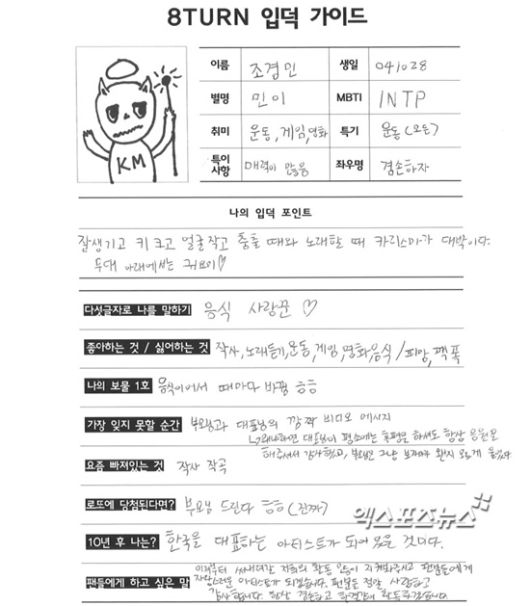 8TURN 입덕 가이드
이름 조경민 생일 041028
별명 민이 MBTI INTP
취미 운동, 게임, 영화 특기 운동(모든)
특이사항 매력이 많음 좌우명 겸손하자
KM
나의 입덕 포인트
잘생기고 키 크고 얼굴 작고 춤출 때와 노래할 때 카리스마가 대박이다.
무대 아래에서는 귀요미♡
다섯글자로 나를 말하기 음식 사랑꾼 ♡
좋아하는 것 / 싫어하는 것 작사, 노래듣기, 운동, 게임, 영화, 음식 / 피망, 팩폭
나의 보물 1호 음식이어서 때마다 바뀜 ㅎㅎ
가장 잊지 못할 순간 부모님과 대표님의 깜짝 비디오 메시지
왜냐하면 대표님이 평소에는 표현은 안 하셔도 항상 응원을
해주셔서 감사하고, 부모님은 그냥 보자마자 왠지 모르게
요즘 빠져있는 것 작사 작곡
로또에 당첨된다면? 부모님 드린다 ㅎㅎ (진짜)
엑스포츠뉴스
10년 후 나는? 한국을 대표하는 아티스트가 되어 있을 것이다.
팬들에게 하고 싶은 말 이제부터 써내려갈 저희의 활동 많이 지켜봐주시고 팬분들에게
자랑스러운 아티스트가 되겠습니다. 팬분들 정말 사랑하고
감사합니다. 항상 겸손하고